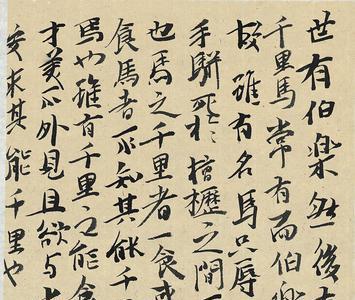 世有伯樂然後有
千里馬常有而伯樂
故雖有名馬只辱
手駢死於槽櫪之間不
也馬之千里者一食或
食馬者不知其能千
馬也雖有千里之能食
才美不外見且欲与
安求其能千里也